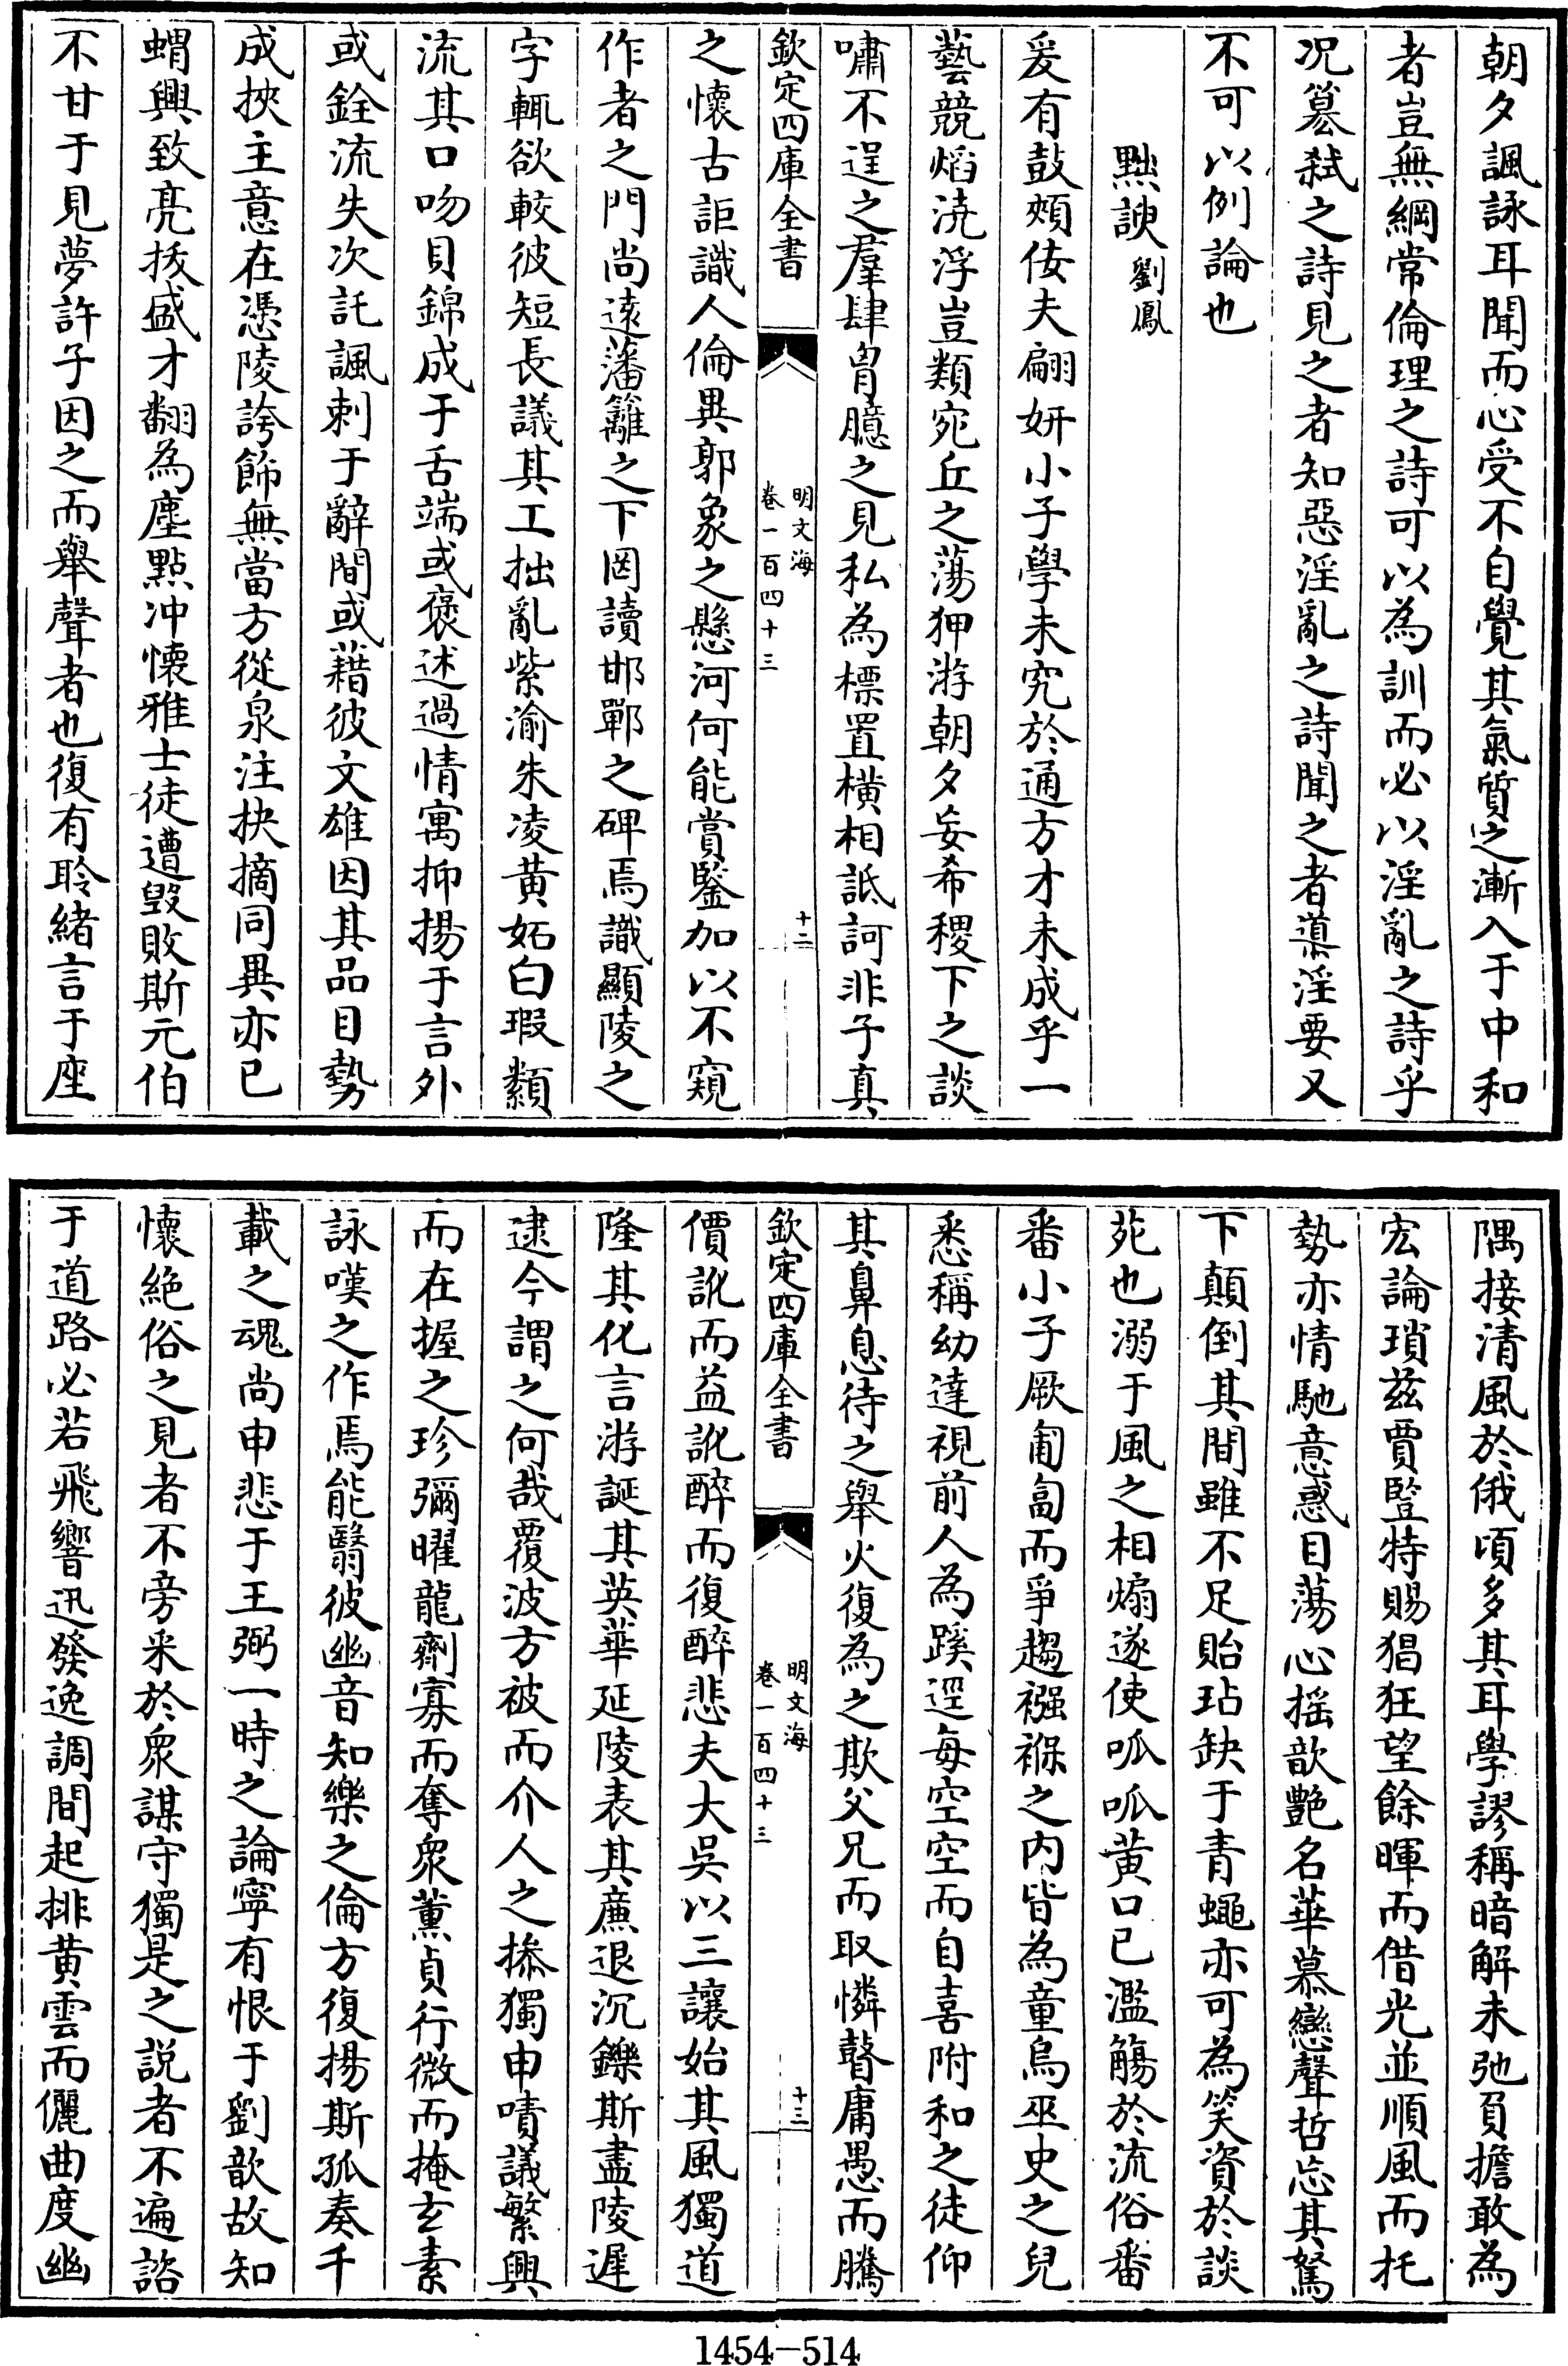 朝夕諷詠耳聞而心受不自覺其氣質之漸入于中和
者豈無綱常倫理之詩可以為訓而必以淫亂之詩乎
况簒弑之詩見之者知惡淫亂之詩聞之者導淫要又
不可以例論也
黜諛劉鳳
爰有鼓頰佞夫翩姸小子學未究於通方才未成乎一
藝競熖澆浮豈類宛丘之蕩狎游朝夕妄希稷下之談
嘯不逞之羣肆胷臆之見私為標置横相詆訶非子真
欽定四庫全書
明文海
卷一百四十三
十二
之懷古詎識人倫異郭象之懸河何能賞鑒加以不窺
作者之門尚遠藩籬之下罔讀邯鄲之碑焉識顯陵之
字輒欲較彼短長議其工拙亂紫渝朱凌黄妬白瑕纇
流其口吻貝錦成于舌端或褒述過情寓抑揚于言外
或銓流失次託諷刺于辭間或藉彼文雄因其品目勢
成挾主意在憑陵誇飾無當方從泉注抉摘同異亦已
蝟興致亮拔盛才翻為塵點冲懷雅士徒遭毁敗斯元伯
不甘于見夢許子因之而舉聲者也復有聆緒言于座
隅接清風於俄頃多其耳學謬稱暗解未弛負擔敢為
宏論瑣兹賈豎特賜猖狂望餘暉而借光並順風而托
勢亦情馳意惑目蕩心摇歆艷名華慕戀聲哲忘其駑
下顛倒其間雖不足貽玷缺于青蠅亦可為笑資於談
苑也溺于風之相煽遂使呱呱黄口已濫觴於流俗番
番小子厥匍匐而爭趨襁褓之内皆為童烏巫史之兒
悉稱幼達視前人為蹊逕每空空而自喜附和之徒仰
其鼻息待之舉火復為之欺父兄而取憐瞽庸愚而騰
欽定四庫全書
明文海
卷一百四十三
十三
價訛而益訛醉而復醉悲夫大吳以三讓始其風獨道
隆其化言游誕其英華延陵表其廉退沉鑠斯盡陵遲
逮今謂之何哉覆波方被而介人之摻獨申嘖議繁興
而在握之珍彌曜龍劑寡而奪衆薫貞行微而掩玄素
詠嘆之作焉能翳彼幽音知樂之倫方復揚斯孤奏千
載之魂尚申悲于王弼一時之論寧有恨于劉歆故知
懷絶俗之見者不旁采於衆謀守獨是之説者不遍諮
于道路必若飛響迅發逸調間起排黄雲而儷曲度幽
1454—514